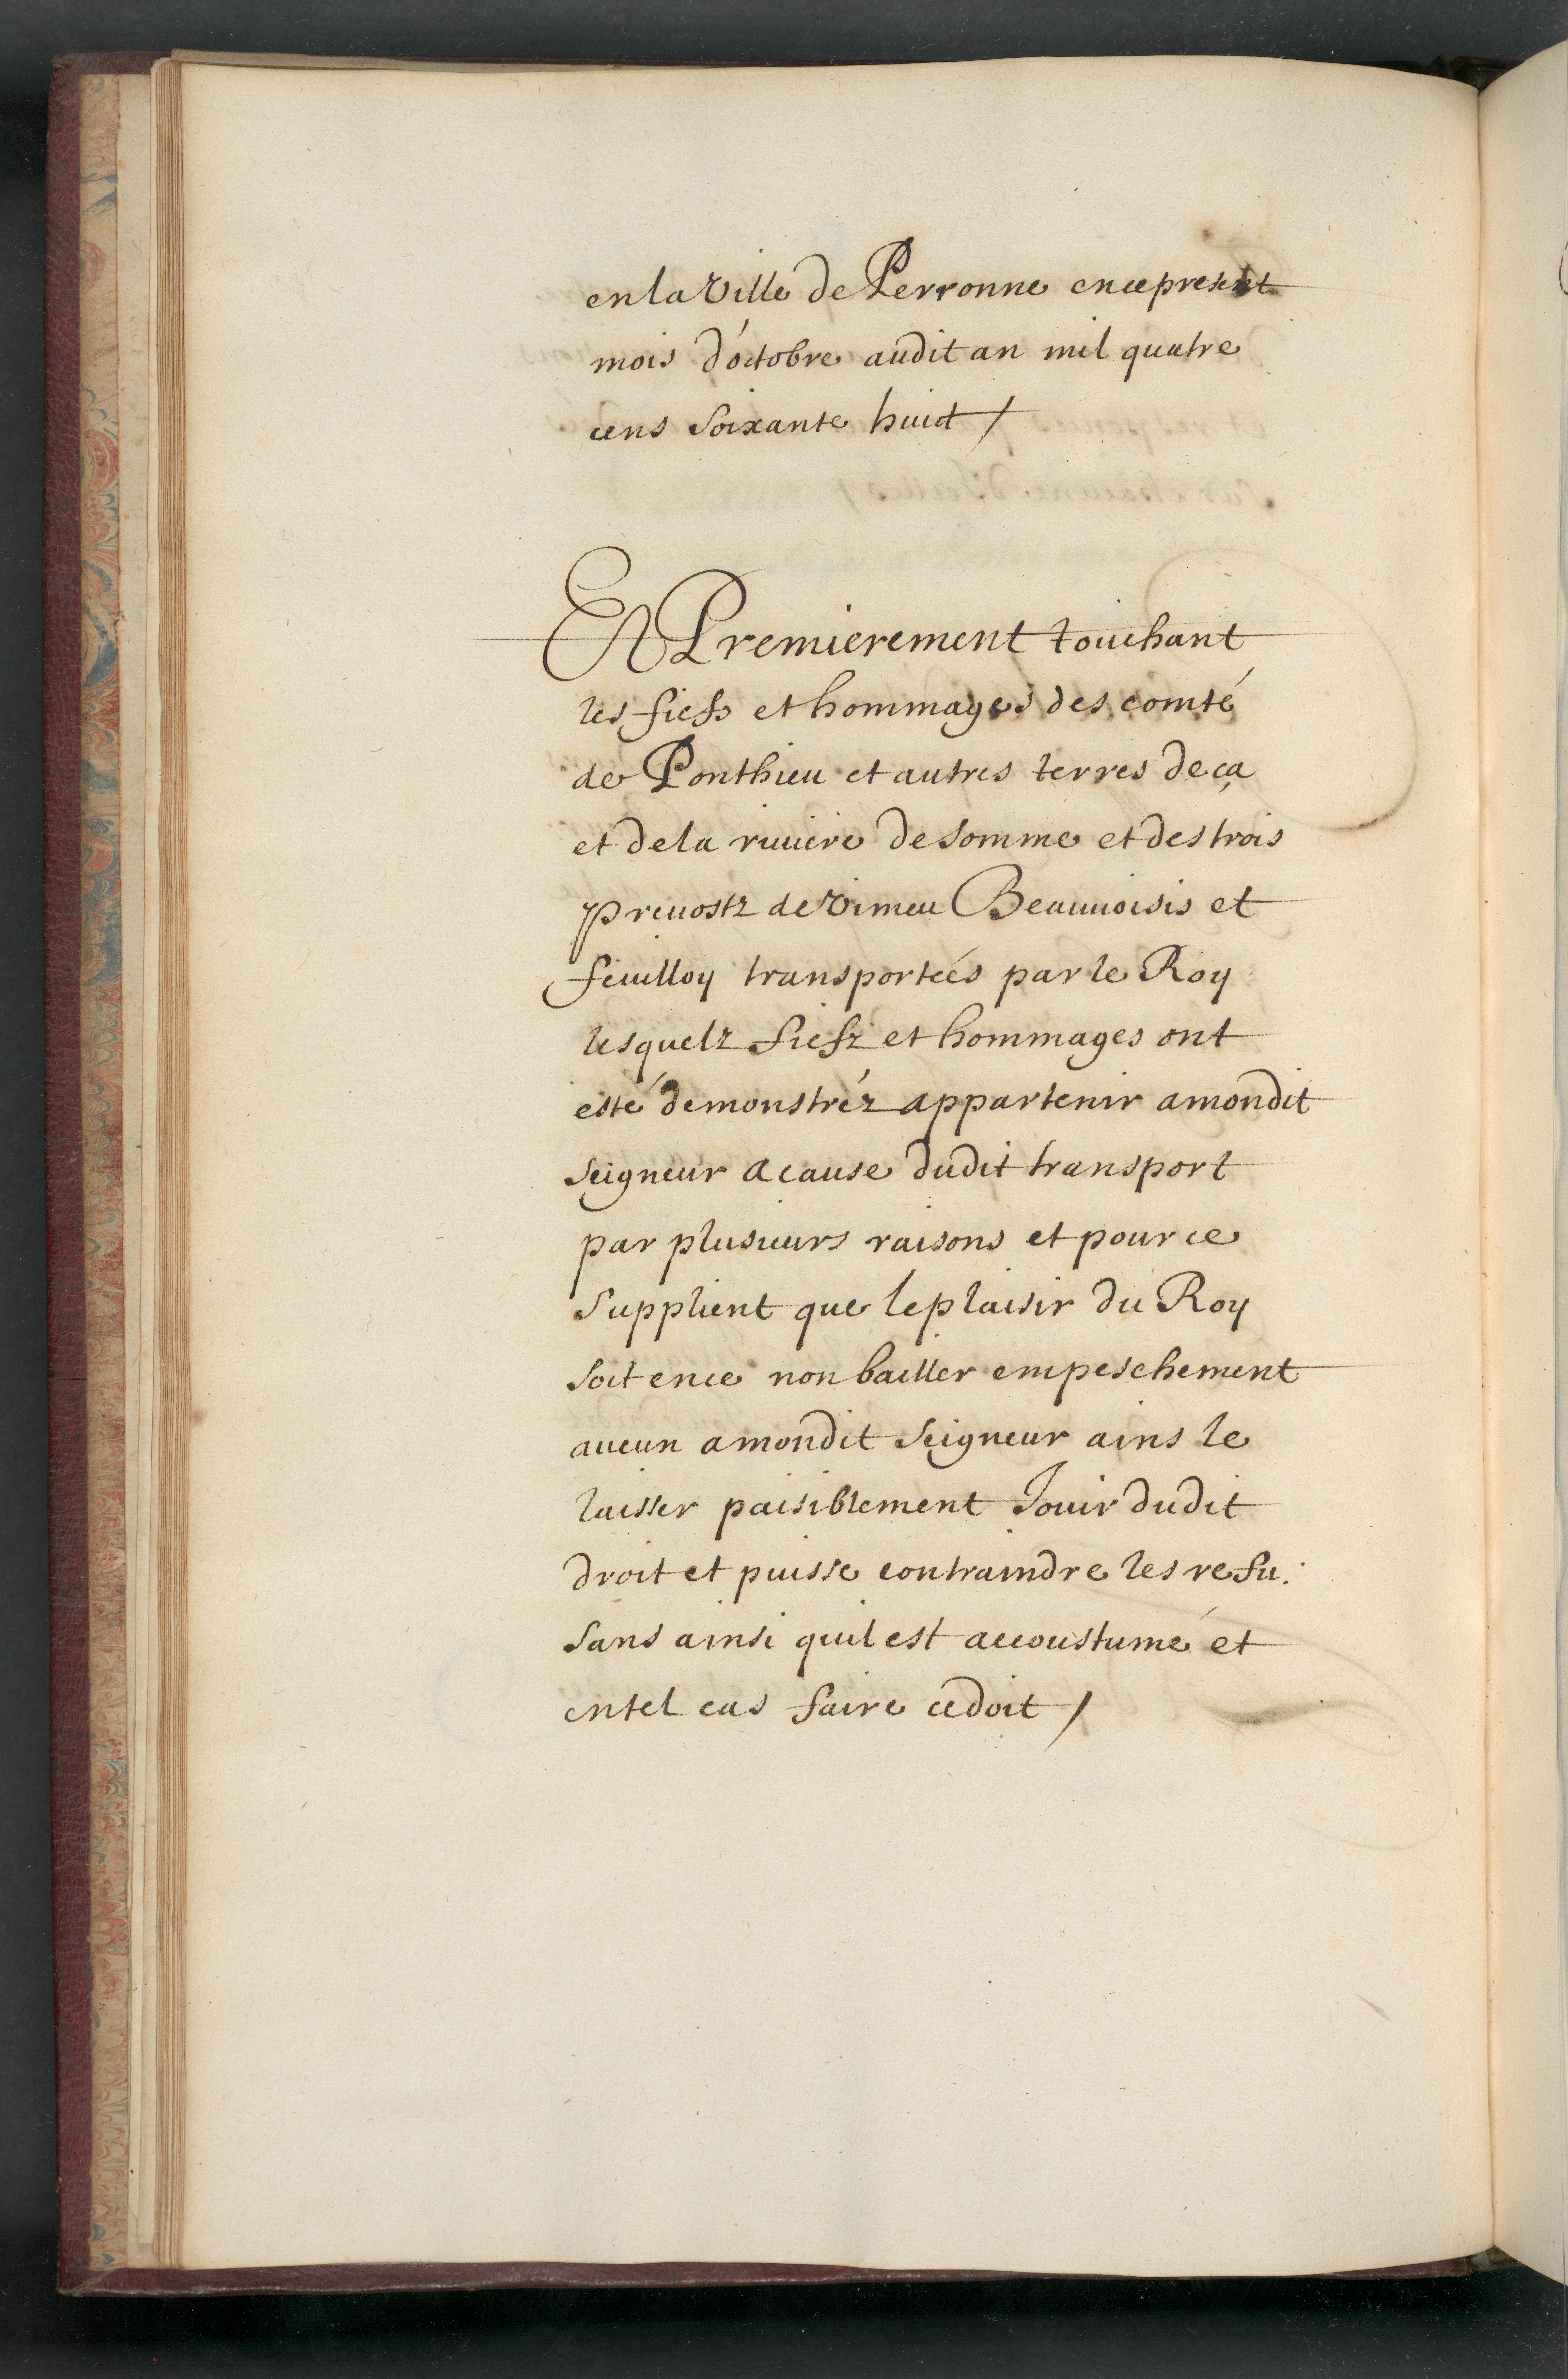 en la ville de Perronne en ce present
mois d'octobre audit an mil quatre
cens soixante huict /
Et Premierement touchant
les fiefs et hommages des comté
de Ponthieu et autres terres deça
et dela riuiere de somme et des trois
preuostz de vimeu Beauuoisis et
feuilloy transporteés par le Roy
lesquelz fiefz et hommages ont
esté demonstréz appartenir a mondit
seigneur a cause dudit transport
par plusieurs raisons et pource
supplient que le plaisir du Roy
soit en ce non bailler empeschement
aucun a mondit seigneur ains le
laisser paisiblement Jouir dudit
droit et puisse contraindre les refu:
sans ainsi quil est accoustumé et
en tel cas faire ce doit /